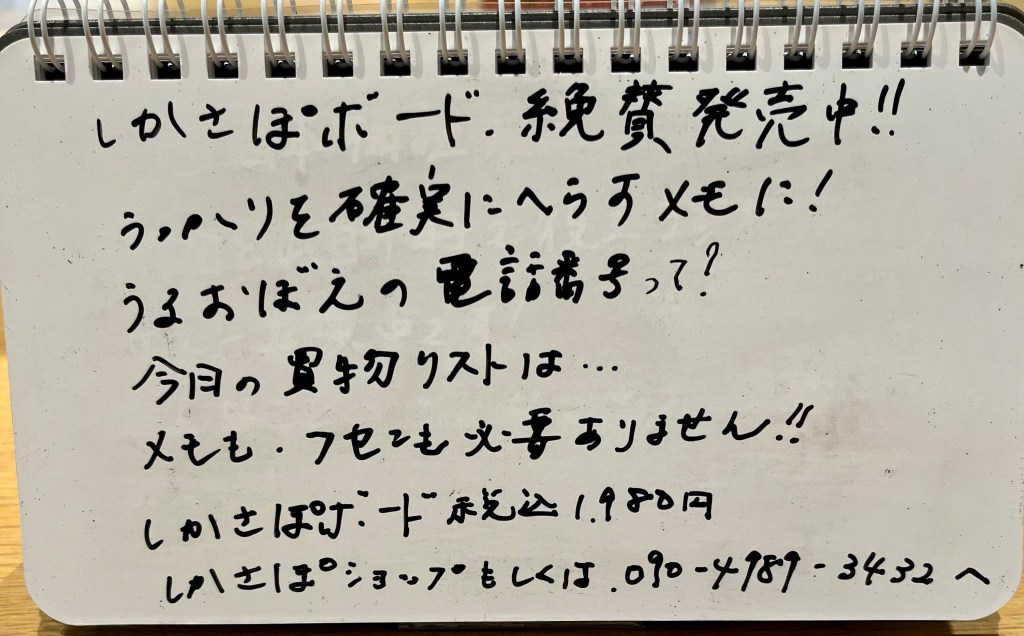 しかさぽボード.絶賛発売中!!
うっかりを確実にへらすメモに!
うるおぼえの電話番号って?
今日の買物リストは…
メモも.フセンも必要ありません!!
しかさぽボード税込1.980円
しかさぽショップもしくは.090-4989-3432へ